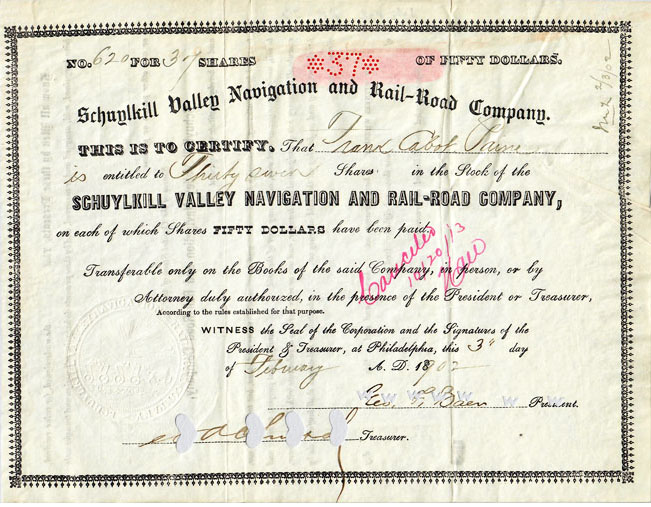 NO. 620 FOR 37 SHARES *37* OF FIFTY DOLLARS.
Schuylkill Valley Navigation and Rail-Road Company.
THIS IS TO CERTIFY, That Frank Cabot Paine
is entitled to Thirty seven Shares in the Stock of the
SCHUYLKILL VALLEY NAVIGATION AND RAIL-ROAD COMPANY,
on each of which Shares FIFTY DOLLARS have been paid.
Transferable only on the Books of the said Company, in person, or by
Attorney duly authorized, in the presence of the President or Treasurer,
According to the rules established for that purpose.
WITNESS the Seal of the Corporation and the Signatures of the
President & Treasurer, at Philadelphia, this 3d day
of February A. D. 1902
Geo. F. Baer President.
Treasurer.
Cancelled
10/20/13
2/3/02